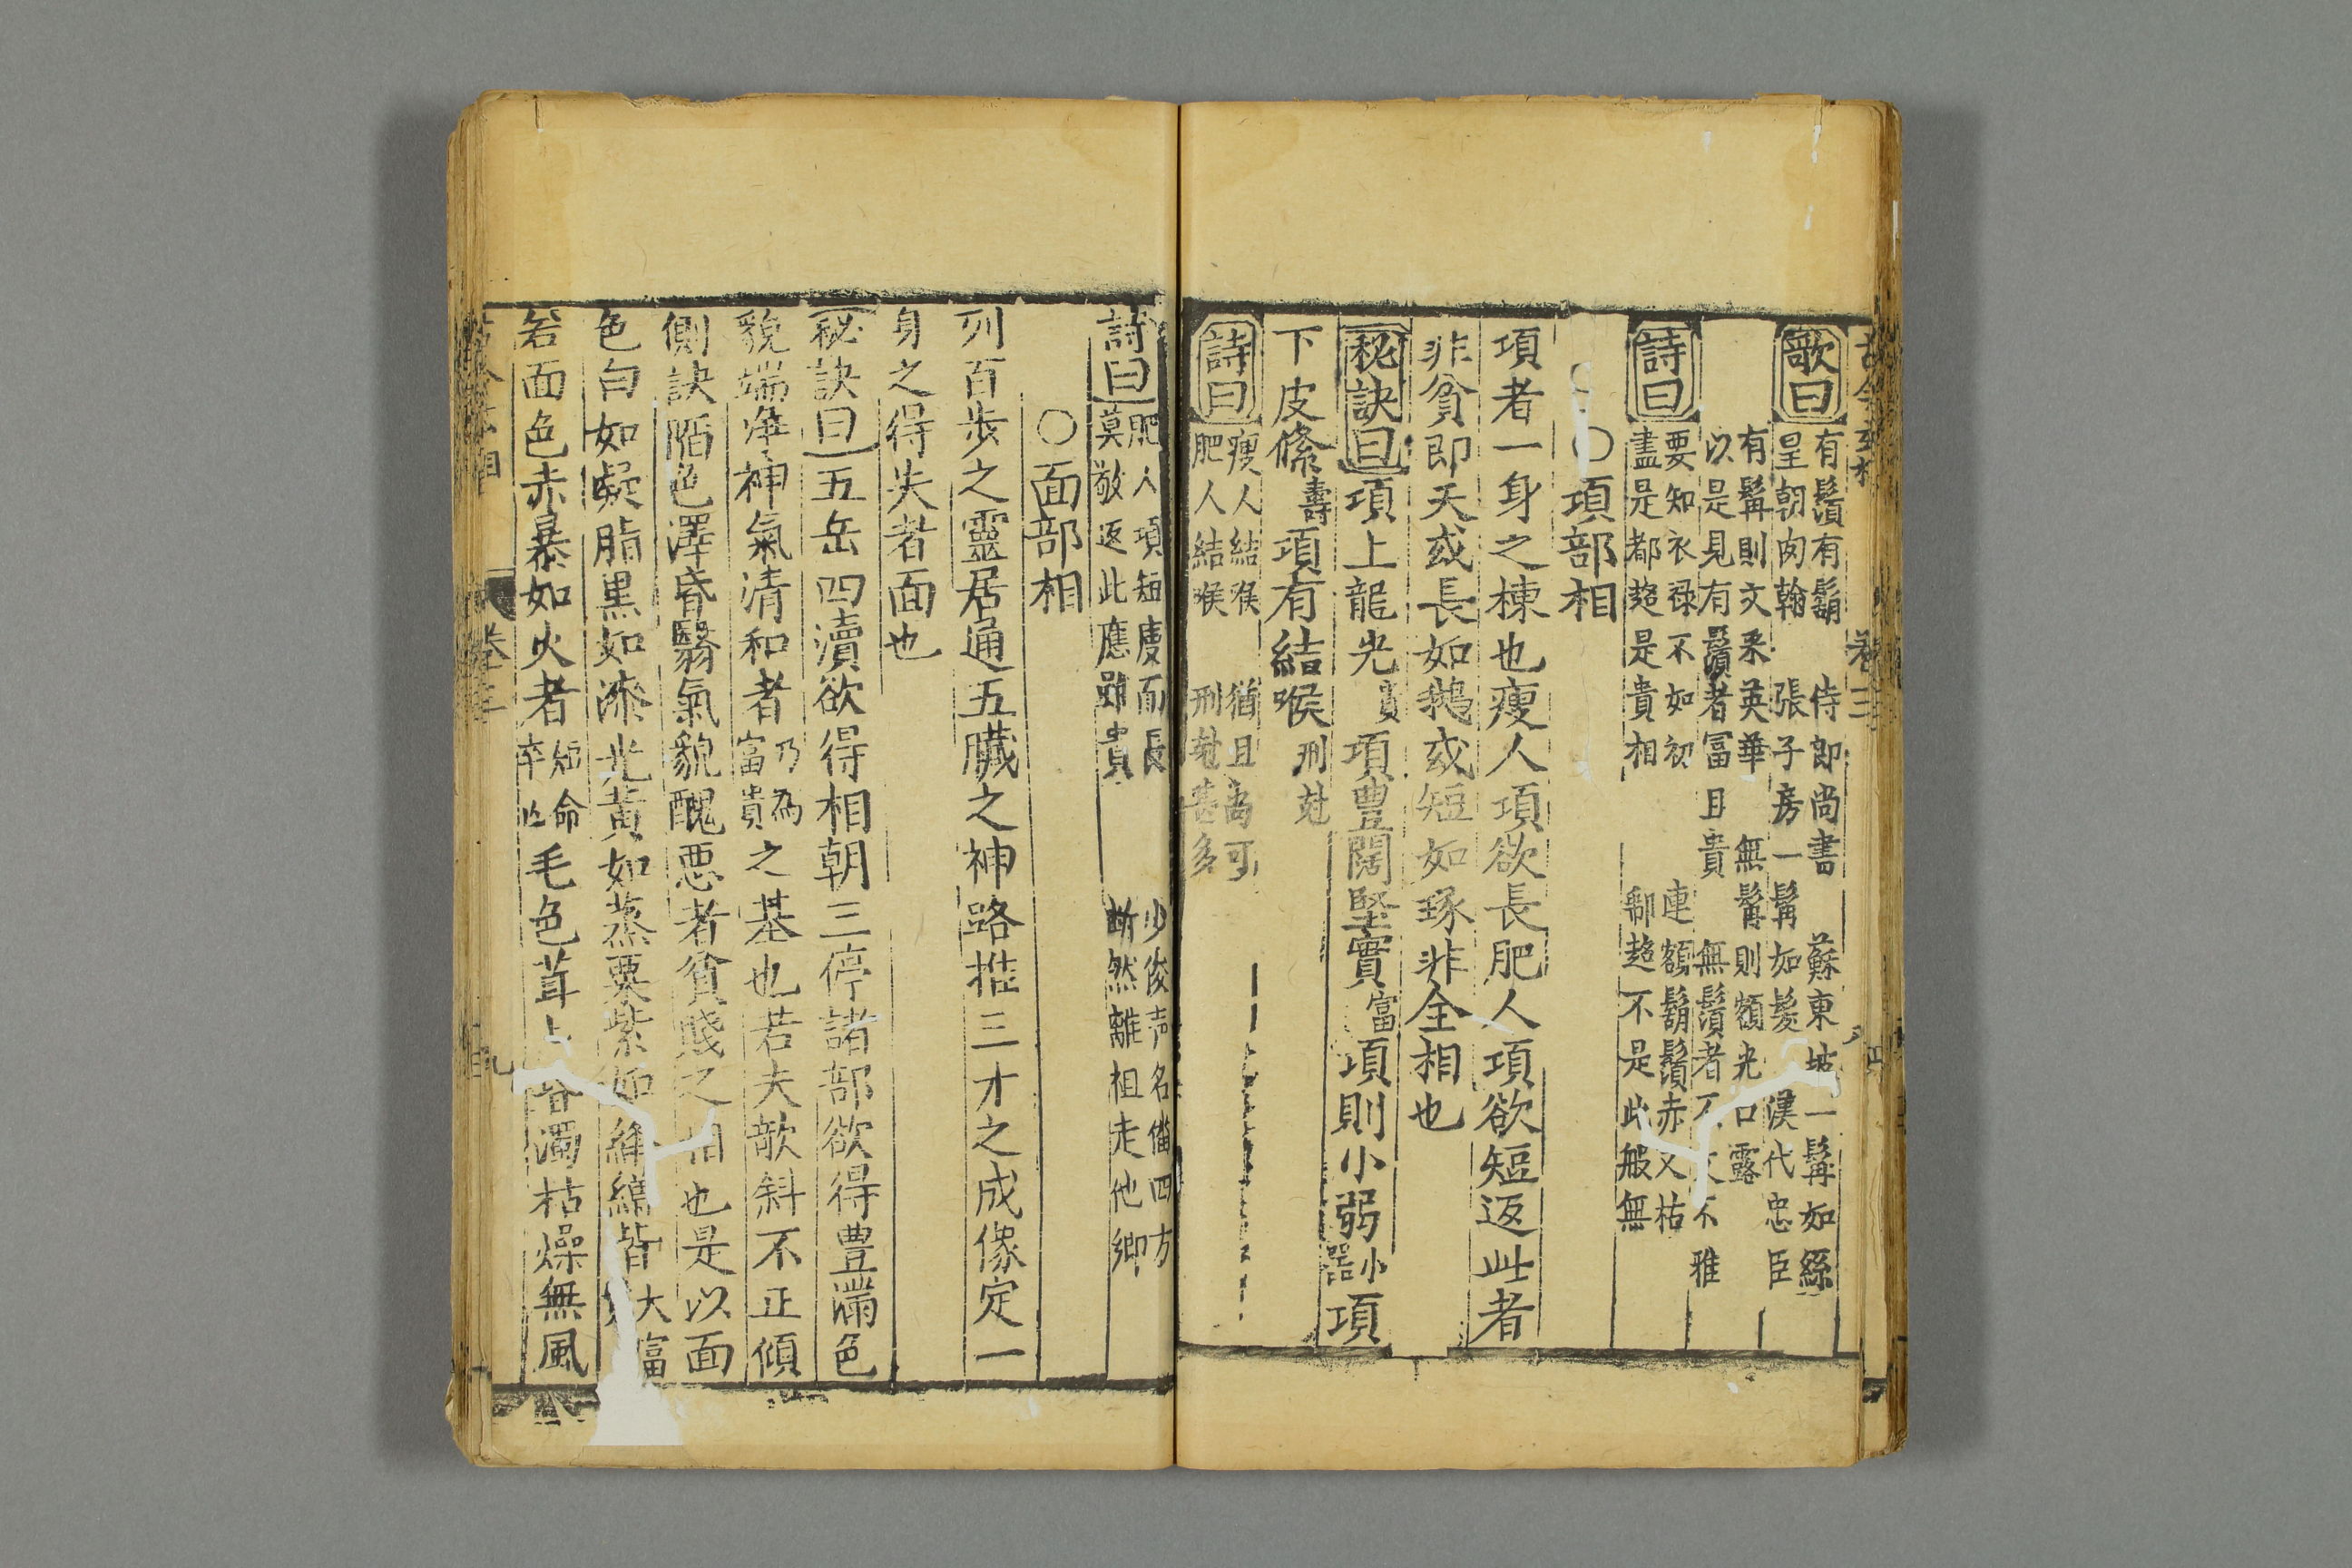 歌曰
有鬚有鬍 侍郎尚書 蘇東坡一髯如絲
呈朝肉翰 張子房一髯如髮 漢代忠臣
有髯則文釆英華 無髯則額光口露
以是見有鬚者冨且貴 無鬚者不文不雅
詩曰
要知衣祿不如初 連額鬍鬚赤又枯
盡是都趍是貴相 鄒趍不是此般無
〇項部相
項者一身之棟也瘦人項欲長肥人項欲短返此者
非貧即夭或長如鵝或短如琢非全相也
秘訣曰項上龍光貴項豊闊堅實富項則小弱小器項
下皮絛壽項有結喉刑尅
詩曰
瘦人結喉 猶且尚可
肥人結喉 刑尅甚多
詩曰
肥人項短虔而長 少俊声名僃四方
莫敬返此應雖貴 断然離祖走他鄉
〇面部相
列百歩之靈居通五臟之神路推三才之成像定一
身之得失者面也
秘訣曰五岳四瀆欲得相朝三停諸部欲得豊滿色
貌端净神氣清和者乃為富貴之基也若夫歒斜不正傾
側訣陋色澤昏翳氣貌醜惡者貧賤之相也是以面
色白如凝脂黒如漆光黄如蒸粟紫如絳繒皆大富
若面色赤暴如火者短命卒亡毛色茸上昏濁枯燥無風
卷三